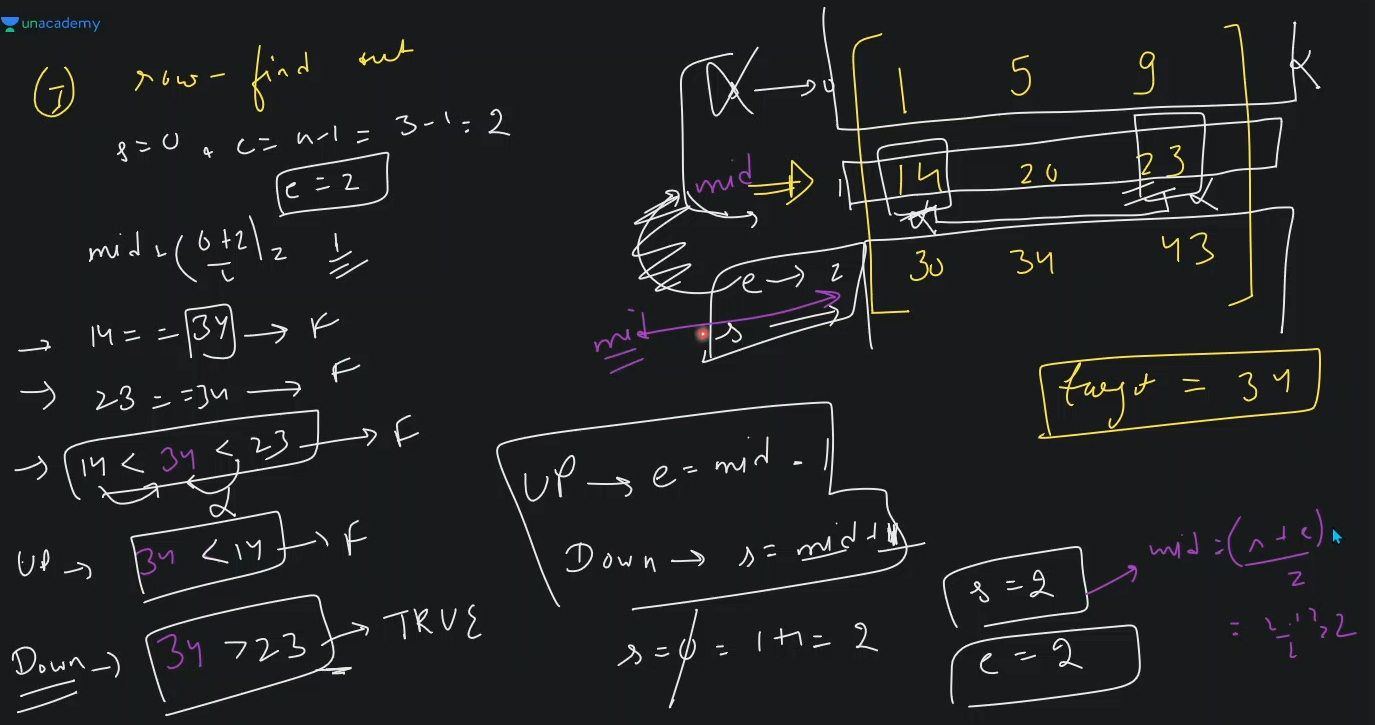 unacademy
(I) row - find out
s = 0, e = n-1 = 3-1 = 2
e = 2
mid = (0+2/2) = 1
→ 14 == 34 → F
→ 23 == 34 → F
→ 14 < 34 < 23 → F
UP → 34 < 14 → F
Down → 34 > 23 → TRUE
0
1 5 9
mid 1
14 20 23
30 34 43
e → 2
s
mid
target = 34
UP → e = mid - 1
Down → s = mid + 1
s = 0 = 1+1 = 2
s = 2
e = 2
mid = (s+e)/2
= 2+2/2 = 2